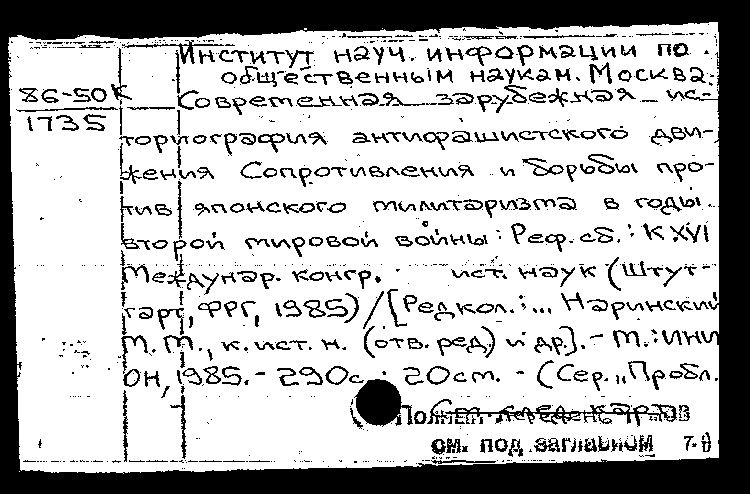 Институт науч. информации по
общественным наукам. Москва.
86-50К
1735
Современная зарубежная ис-
ториография антифашистского дви-
жения Сопротивления и борьбы про-
тив японского милитаризма в годы
второй мировой войны: Реф. сб.: К XVI
Междунар. конгр. ист. наук (Штут-
гарт, ФРГ, 1985) / [Редкол.: ... Наринский
М. М., к. ист. н. (отв. ред.) и др.]. - М.: ИНИ
ОН, 1985. - 290с.; 20см. - (Сер. „Пробл.
Полный
см. под заглавном 7-